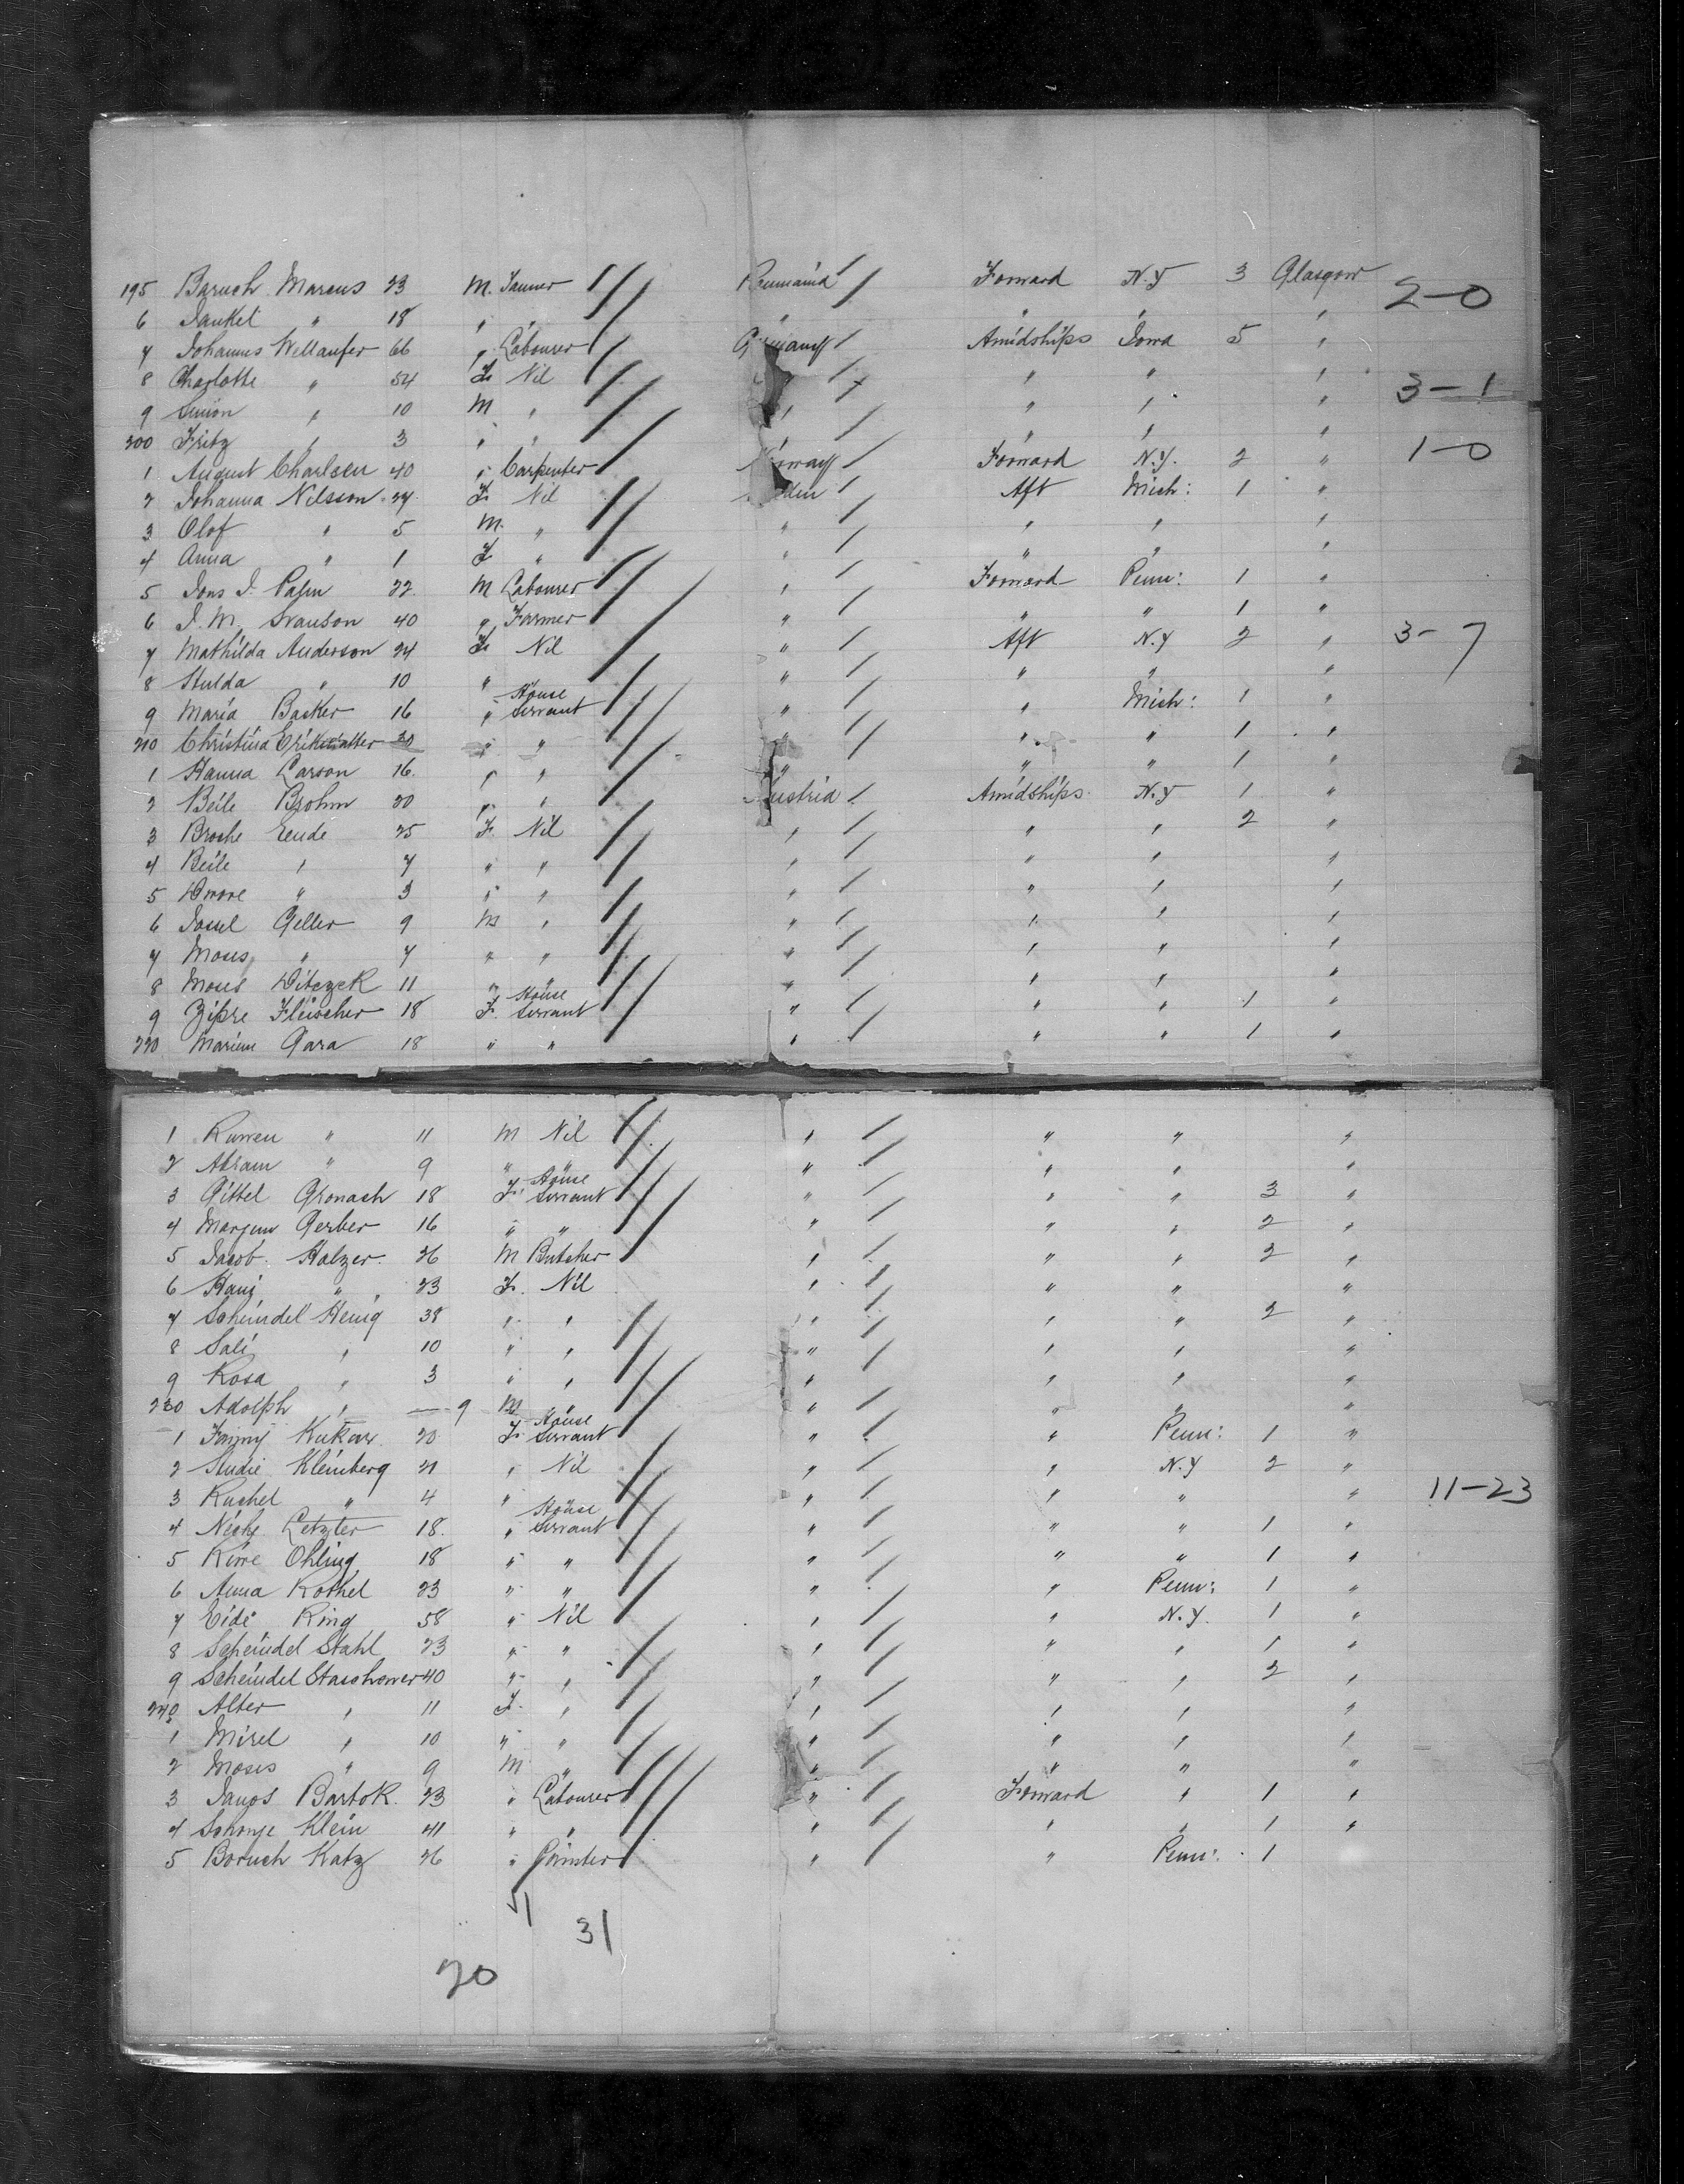 195 Baruch Marcus 23 M. Tanner Roumania Forward N.Y 3 Glasgow 2-0
6 Jankel " 18 " " " " " "
7 Johannes Wellaufer 66 " Labourer Germany Amidships Iowa 5 "
8 Charlotte " 54 F. Nil " " " 3-1
9 Simon " 10 M " " " " "
200 Fritz " 3 " " " " " "
1 August Charlsen 40 " Carpenter Norway Forward N.Y. 2 " 1-0
2 Johanna Nilsson 27 F. Nil Aft Mich: 1 "
3 Olof " 5 M. " " " " "
4 Anna " 1 F " " " " "
5 Jons J. Palm 22 M Labourer " Forward Penn: 1 "
6 J. M. Svanson 40 " Farmer " " " 1 "
7 Mathilda Anderson 24 F. Nil " Aft N.Y 2 " 3-7
8 Hulda " 10 " " " " "
9 Maria Backer 16 " House Servant " " Mich: 1 "
210 Christina 30 " " " " " 1 "
1 Hanna Larson 16. " " " " " 1 "
2 Beile Brohm 20 " " Austria Amidships N.Y 1 "
3 Broche Eeude 25 F. Nil " " " 2 "
4 Beile " 7 " " " " " "
5 " 3 " " " " " "
6 Jossel Geller 9 M " " " " "
7 Moses " 7 " " " " " "
8 Moses Ditczek 11 " " " " " "
9 Zipre Fleischer 18 F. House Servant " " " 1 "
220 Mariem Gara 18 " " " " " 1 "
1 Ruwen " 11 M Nil " " " "
2 Abram " 9 " " " " " "
3 Gittel Gronach 18 F. House Servant " " " 3 "
4 Marjem Gerber 16 " " " " " 2 "
5 Jacob Halzer 26 M Butcher " " " 2 "
6 Hani " 23 F. Nil " " " "
7 Scheindel Henig 38 " " " " " 2 "
8 Sali " 10 " " " " " "
9 Rosa " 3 " " " " " "
230 Adolph " 9 M " " " " "
1 Kukar 20 F. House Servant " " Penn: 1 "
2 Kleinberg 21 " Nil " " N.Y 2 "
3 Ruchel " 4 " " " " " 11-23
4 Letzter 18. " House Servant " " " 1 "
5 Ohling 18 " " " " " 1 "
6 Anna Rothel 23 " " " " Penn: 1 "
7 Eide Ring 58 " Nil " " N.Y. 1 "
8 Scheindel Stahl 23 " " " " " 1 "
9 Scheindel Staschower 40 " " " " " 2 "
240 Alter " 11 F. " " " " "
1 Mirel " 10 " " " " " "
2 Moses " 9 M " " " " "
3 Janos Bartok. 23 " Labourer " Forward " 1 "
4 Klein 41 " " " " " 1 "
5 Boruch Katz 26 " " " Penn: 1
51
31
20